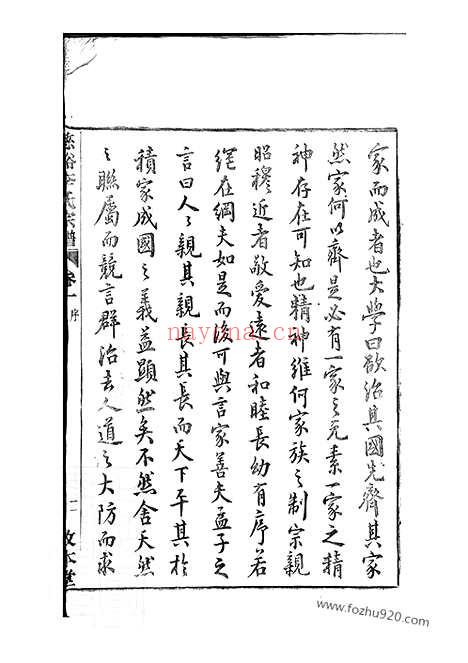 家而成者也大學曰欲治其國先齊其家
然家何以齊是必有一家之元素一家之精
神存在可知也精神維何家族之制宗親
昭穆近者敬愛遠者和睦長幼有序若
網在綱夫如是而後可與言家善夫孟子之
言曰人之親其親長其長而天下平其於
積家成國之義益顯然矣不然舍天然
之聯屬而競言群治去人道之大防而求
李氏宗譜
卷一
序
二
敦本堂
nayona.cn
www.fozhu920.com